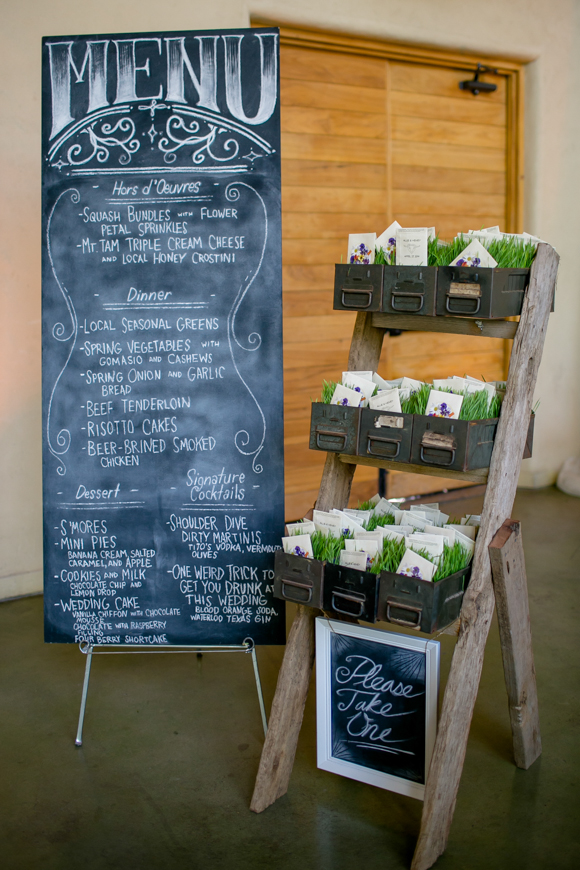 MENU
Hors d'Oeuvres
-SQUASH BUNDLES WITH FLOWER
PETAL SPRINKLES
-MT. TAM TRIPLE CREAM CHEESE
AND LOCAL HONEY CROSTINI
Dinner
-LOCAL SEASONAL GREENS
-SPRING VEGETABLES WITH
GOMASIO AND CASHEWS
-SPRING ONION AND GARLIC
BREAD
-BEEF TENDERLOIN
-RISOTTO CAKES
-BEER-BRINED SMOKED
CHICKEN
-Dessert-
-S'MORES
-MINI PIES
BANANA CREAM, SALTED
CARAMEL, AND APPLE
-COOKIES AND MILK
CHOCOLATE CHIP AND
LEMON DROP
-WEDDING CAKE
VANILLA CHIFFON WITH CHOCOLATE
MOUSSE
CHOCOLATE WITH RASPBERRY
FILLING
FOUR BERRY SHORTCAKE
Signature
-Cocktails-
-SHOULDER DIVE
DIRTY MARTINIS
TITO'S VODKA, VERMOUTH
OLIVES
-ONE WEIRD TRICK TO
GET YOU DRUNK AT
THIS WEDDING
BLOOD ORANGE SODA,
WATERLOO TEXAS GIN
Please
Take
One